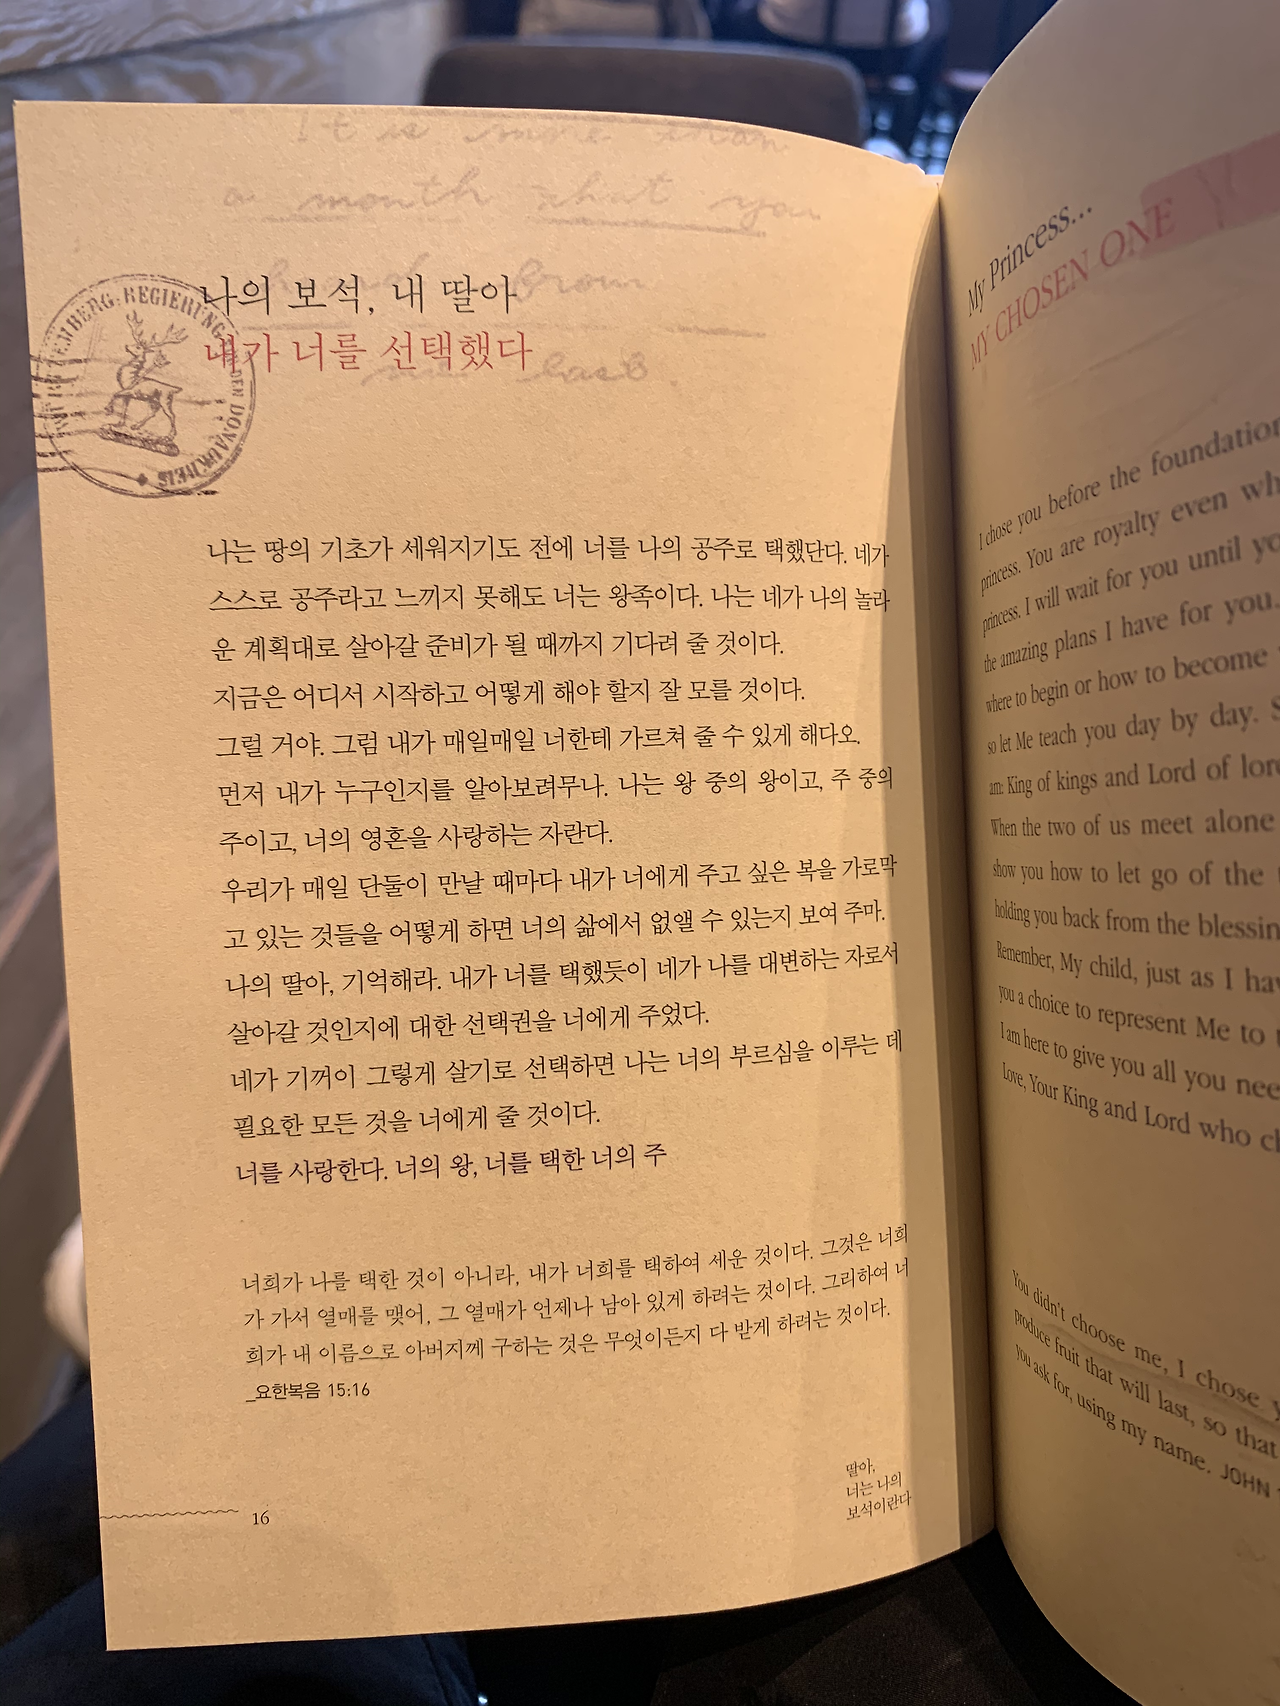 It is more than
a month that you
from
나의 보석, 내 딸아
내가 너를 선택했다
last.
REGIERUNG
나는 땅의 기초가 세워지기도 전에 너를 나의 공주로 택했단다. 네가
스스로 공주라고 느끼지 못해도 너는 왕족이다. 나는 네가 나의 놀라
운 계획대로 살아갈 준비가 될 때까지 기다려 줄 것이다.
지금은 어디서 시작하고 어떻게 해야 할지 잘 모를 것이다.
그럴 거야. 그럼 내가 매일매일 너한테 가르쳐 줄 수 있게 해다오.
먼저 내가 누구인지를 알아보려무나. 나는 왕 중의 왕이고, 주 중의
주이고, 너의 영혼을 사랑하는 자란다.
우리가 매일 단둘이 만날 때마다 내가 너에게 주고 싶은 복을 가로막
고 있는 것들을 어떻게 하면 너의 삶에서 없앨 수 있는지 보여 주마.
나의 딸아, 기억해라. 내가 너를 택했듯이 네가 나를 대변하는 자로서
살아갈 것인지에 대한 선택권을 너에게 주었다.
네가 기꺼이 그렇게 살기로 선택하면 나는 너의 부르심을 이루는 데
필요한 모든 것을 너에게 줄 것이다.
너를 사랑한다. 너의 왕, 너를 택한 너의 주
너희가 나를 택한 것이 아니라, 내가 너희를 택하여 세운 것이다. 그것은 너희
가 가서 열매를 맺어, 그 열매가 언제나 남아 있게 하려는 것이다. 그리하여 너
희가 내 이름으로 아버지께 구하는 것은 무엇이든지 다 받게 하려는 것이다.
_요한복음 15:16
16
딸아,
너는 나의
보석이란다
My Princess...
MY CHOSEN ONE
I chose you before the foundation
princess. You are royalty even
princess. I will wait for you until
the amazing plans I have for you.
where to begin or how to become
so let Me teach you day by day.
am: King of kings and Lord of
When the two of us meet alone
show you how to let go of the
holding you back from the
Remember, My child, just as I
you a choice to represent Me to
I am here to give you all you
Love, Your King and Lord who
You didn't choose me, I chose
produce fruit that will last, so that
you ask for, using my name. JOHN